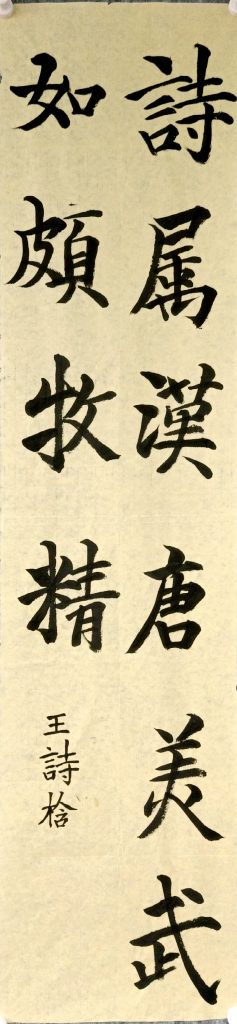 詩属漢唐美武
如頗牧精
王詩捨